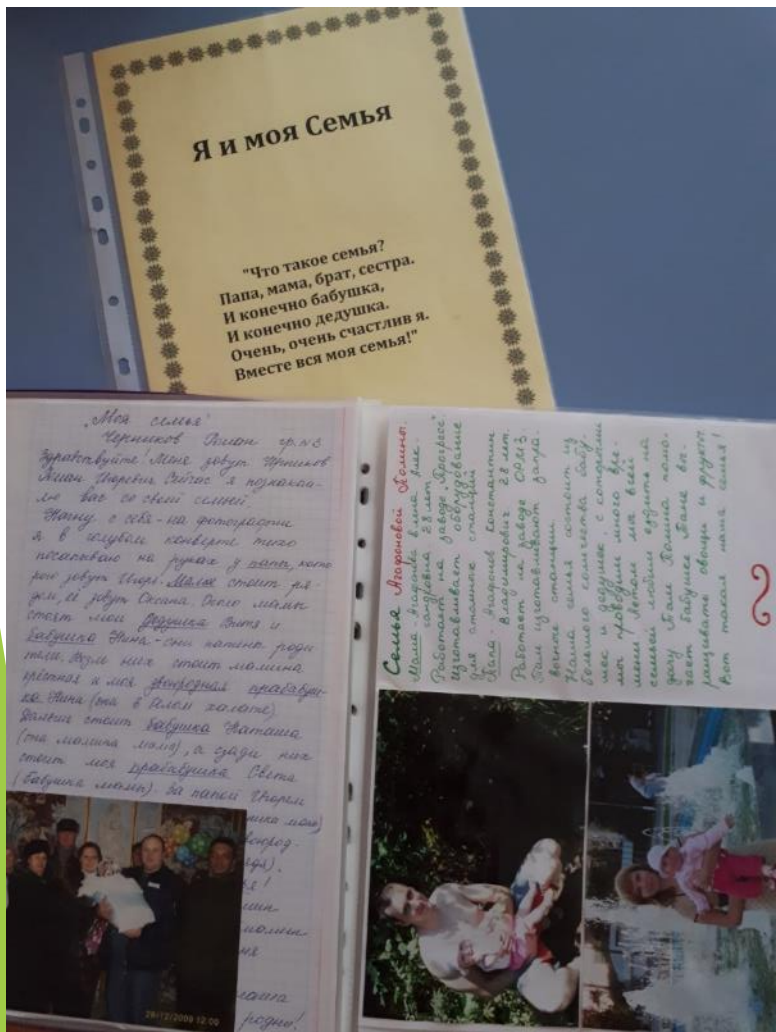 Я и моя Семья
"Что такое семья?
Папа, мама, брат, сестра.
И конечно бабушка,
И конечно дедушка.
Очень, очень счастлив я.
Вместе вся моя семья!"
„Моя семья"
Черников гр. №3
Здравствуйте! Меня зовут Черников
Игоревич Сейчас я познаком-
лю вас со своей семьей.
Начну с себя - на фотографии
я в голубом конверте тихо
посапываю на руках у папы, кото
рого зовут Игорь. Мама стоит ря-
дом, её зовут Оксана. Около мамы
стоят мои дедушка Витя и
бабушка Нина - они папины роди
тели. Возле них стоит мамина
крёстная и моя двоюродная прабабуш-
ка Нина (она в белом халате)
Дальше стоит бабушка Наташа
(она мамина мама), а сзади них
стоит моя прабабушка Света
(бабушка мамы). За папой Игорем
родни!
28/12/2009 12:00
Семья Агафоновой Полины.
Мама - Агафонова Елена Алек-
сандровна 28 лет
Работает на заводе „Прогресс"
Изготавливает оборудование
для станций
Папа - Агафонов Константин
Владимирович 28 лет.
Работает на заводе
Там изготавливают запра-
вочные станции.
Наша семья состоит из
большого количества бабу-
шек и дедушек, с которыми
мы проводим много вре-
мени. Летом мы всей
семьей любим ездить на
дачу. Там Полина помо-
гает бабушке Тане вы-
ращивать овощи и фрукты.
Вот такая наша семья!